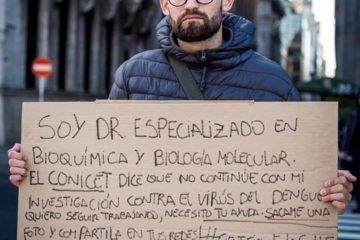 SOY DR. ESPECIALIZADO EN
BIOQUÍMICA Y BIOLOGÍA MOLECULAR.
EL CONICET DICE QUE NO CONTINÚE CON MI
INVESTIGACIÓN CONTRA EL VIRÚS DEL DENGUE
QUIERO SEGUIR TRABAJANDO, NECESITO TU AYUDA. SACAME UNA
FOTO Y COMPARTILA EN TUS REDES